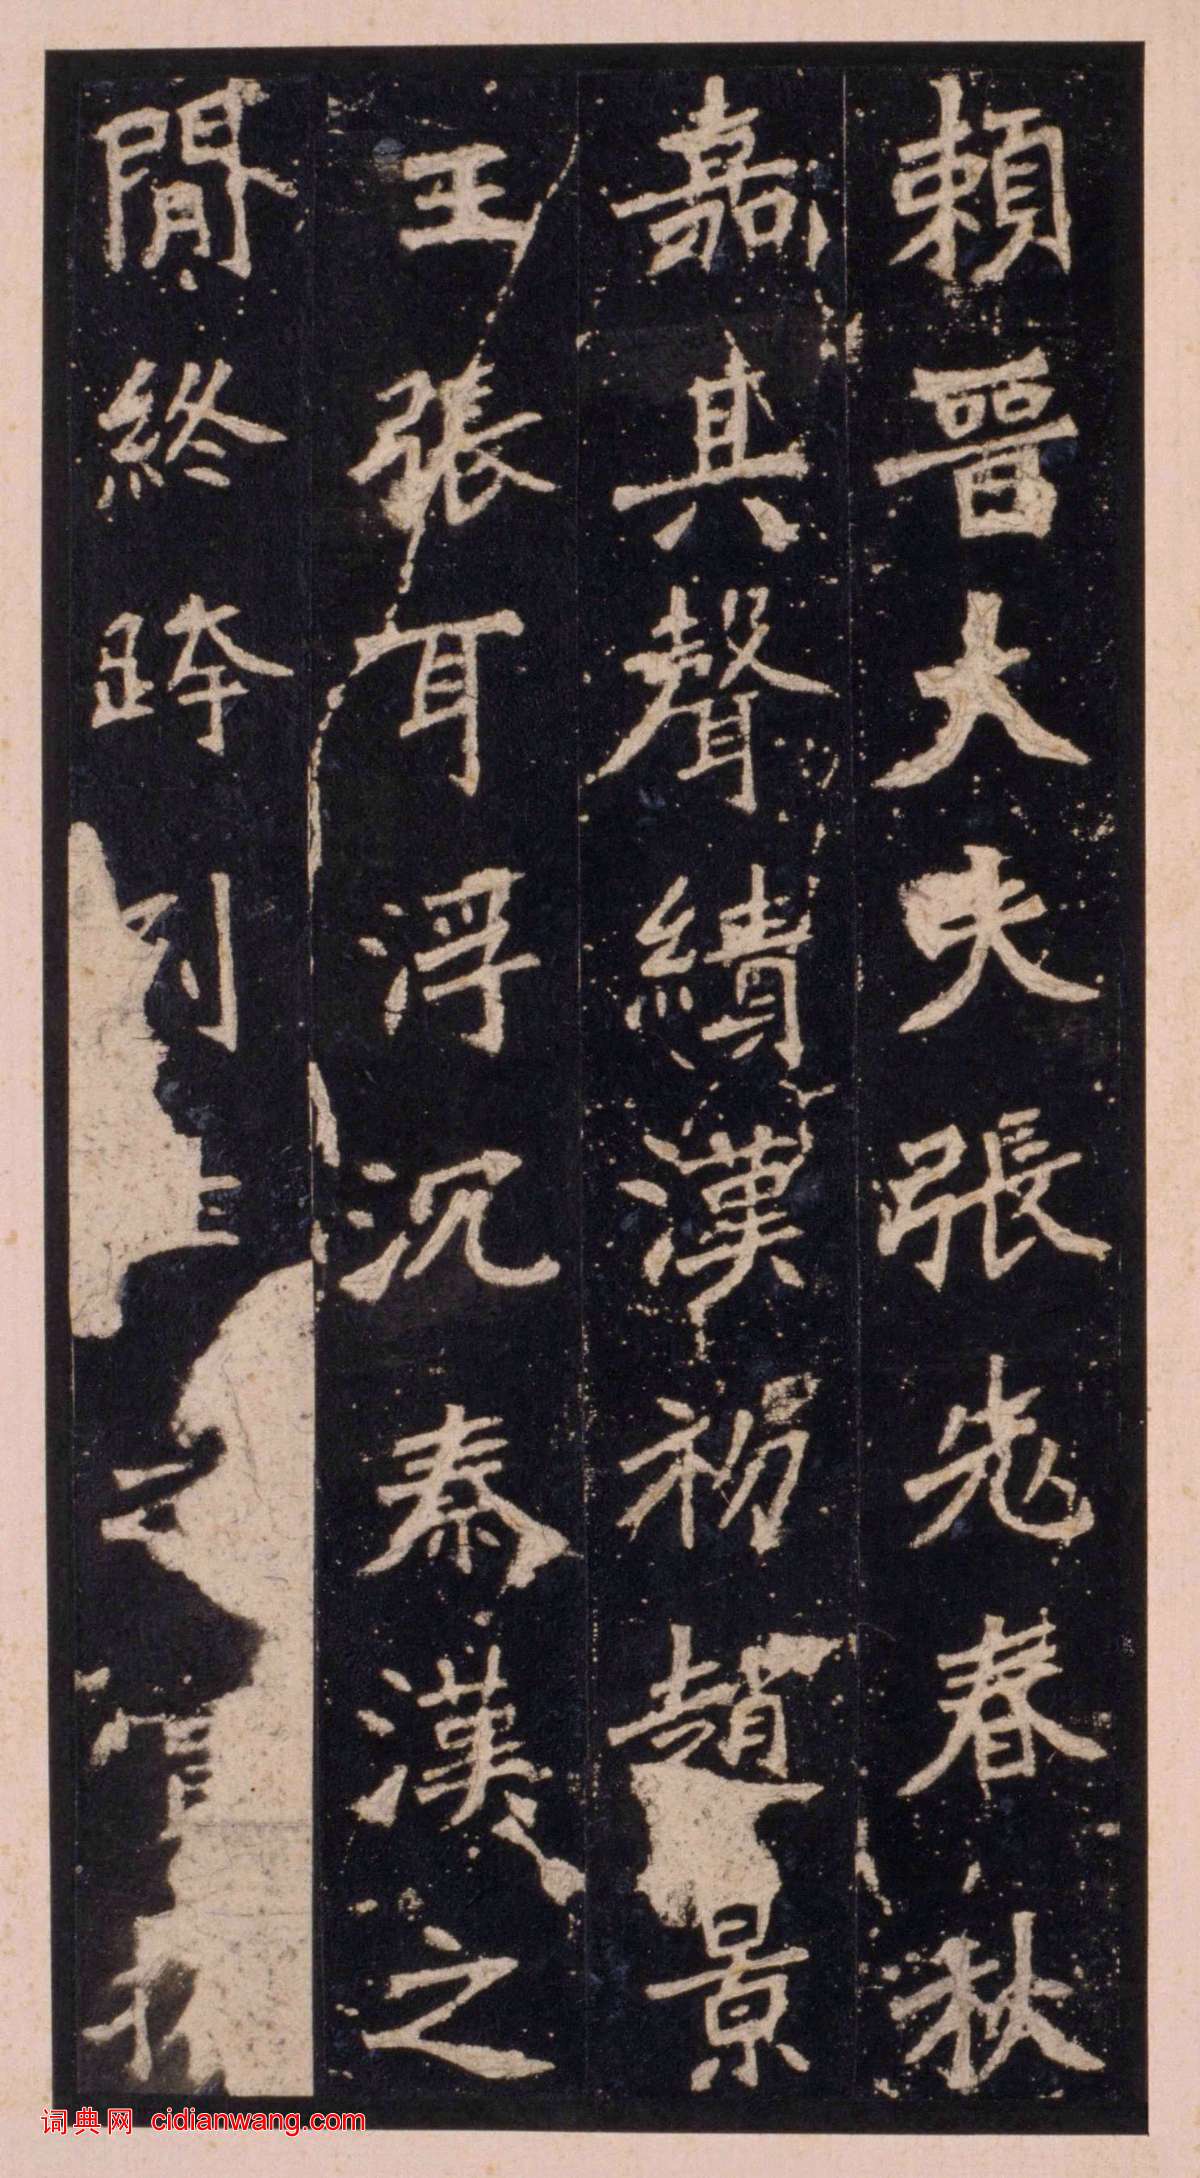 頼晉大夫張老春秋
嘉其聲績漢初趙景
王張耳浮沉秦漢之
間終跨列土之
词典网 cidianwang.com